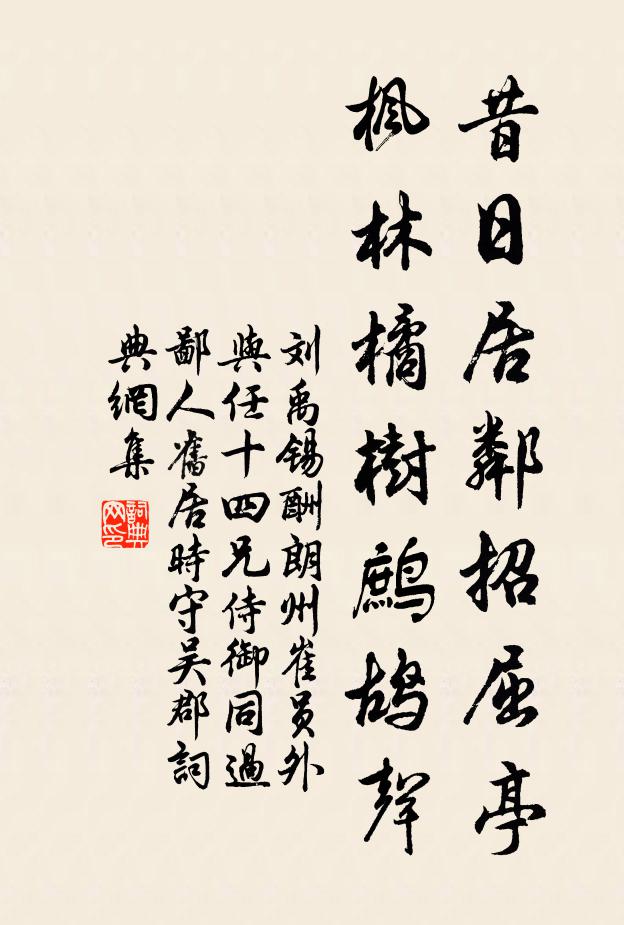 昔日居鄰招屈亭
枫林橘樹鷓鴣聲
刘禹锡酬朗州崔员外
與任十四兄侍御同過
鄙人舊居時守吴郡詞
典網集
詞典
网印